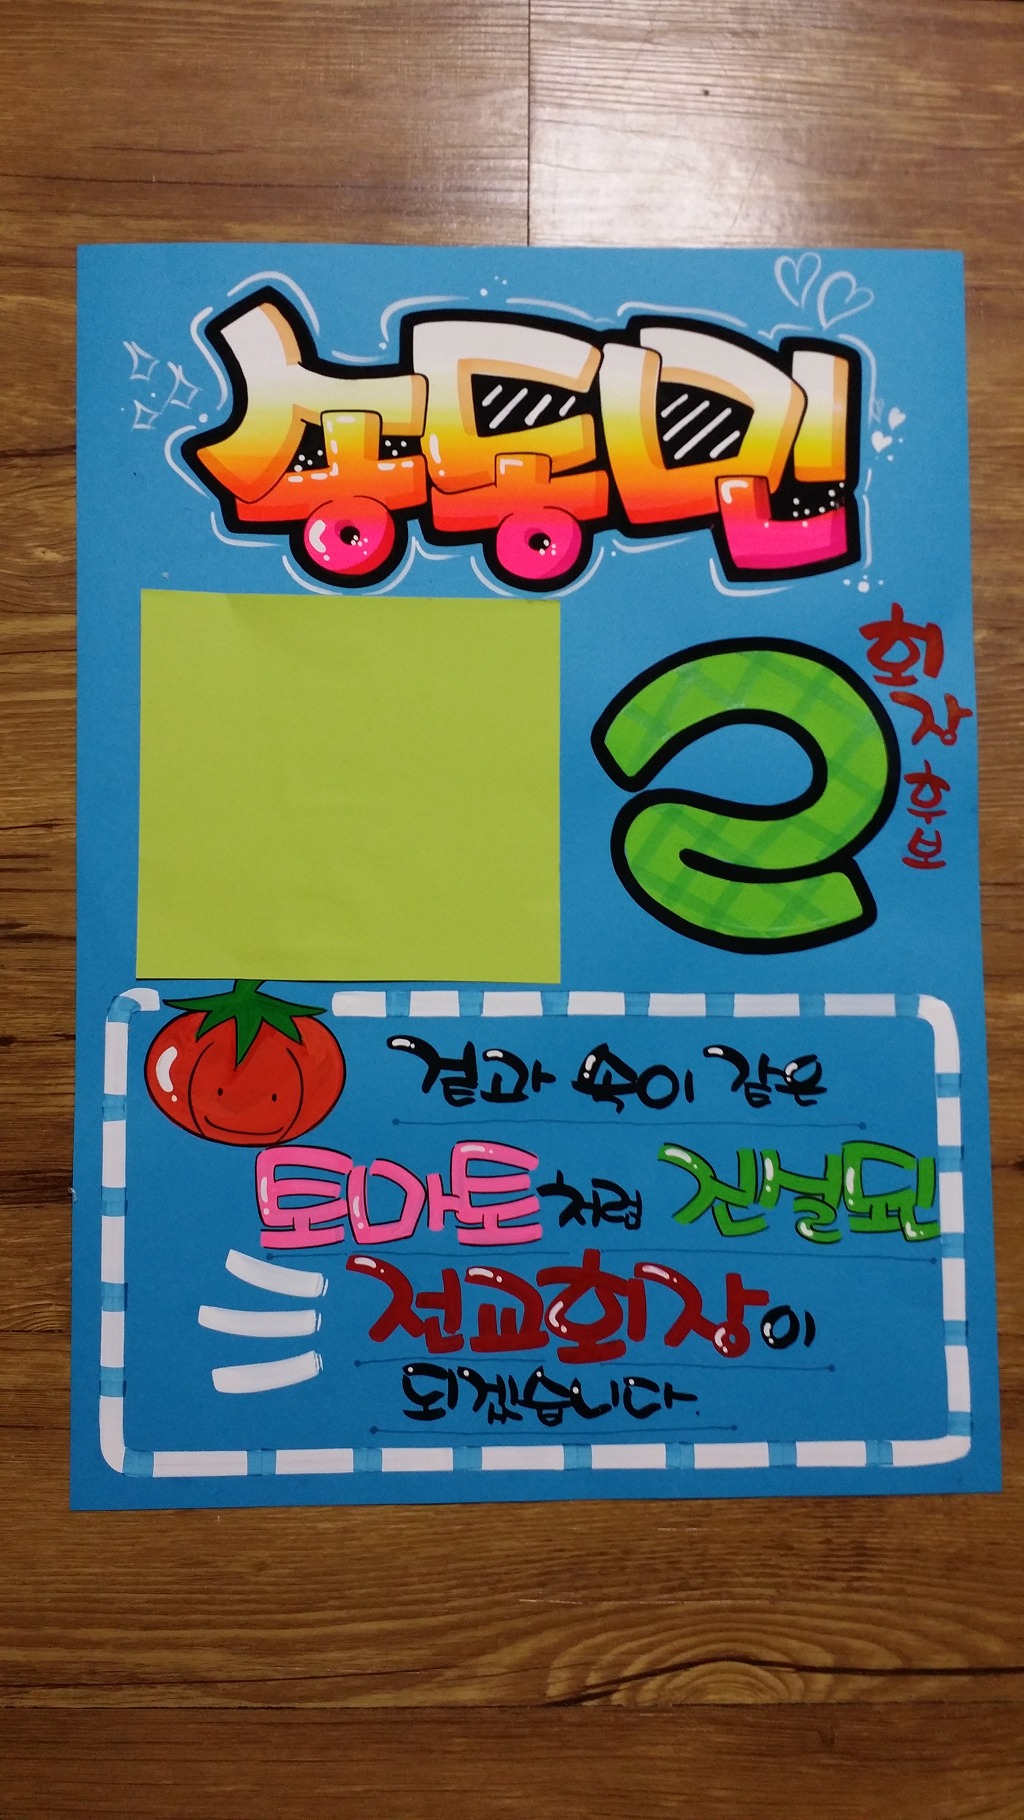 송동민
2
회장 후보
겉과 속이 같은
토마토처럼 진실된
전교회장이
되겠습니다.